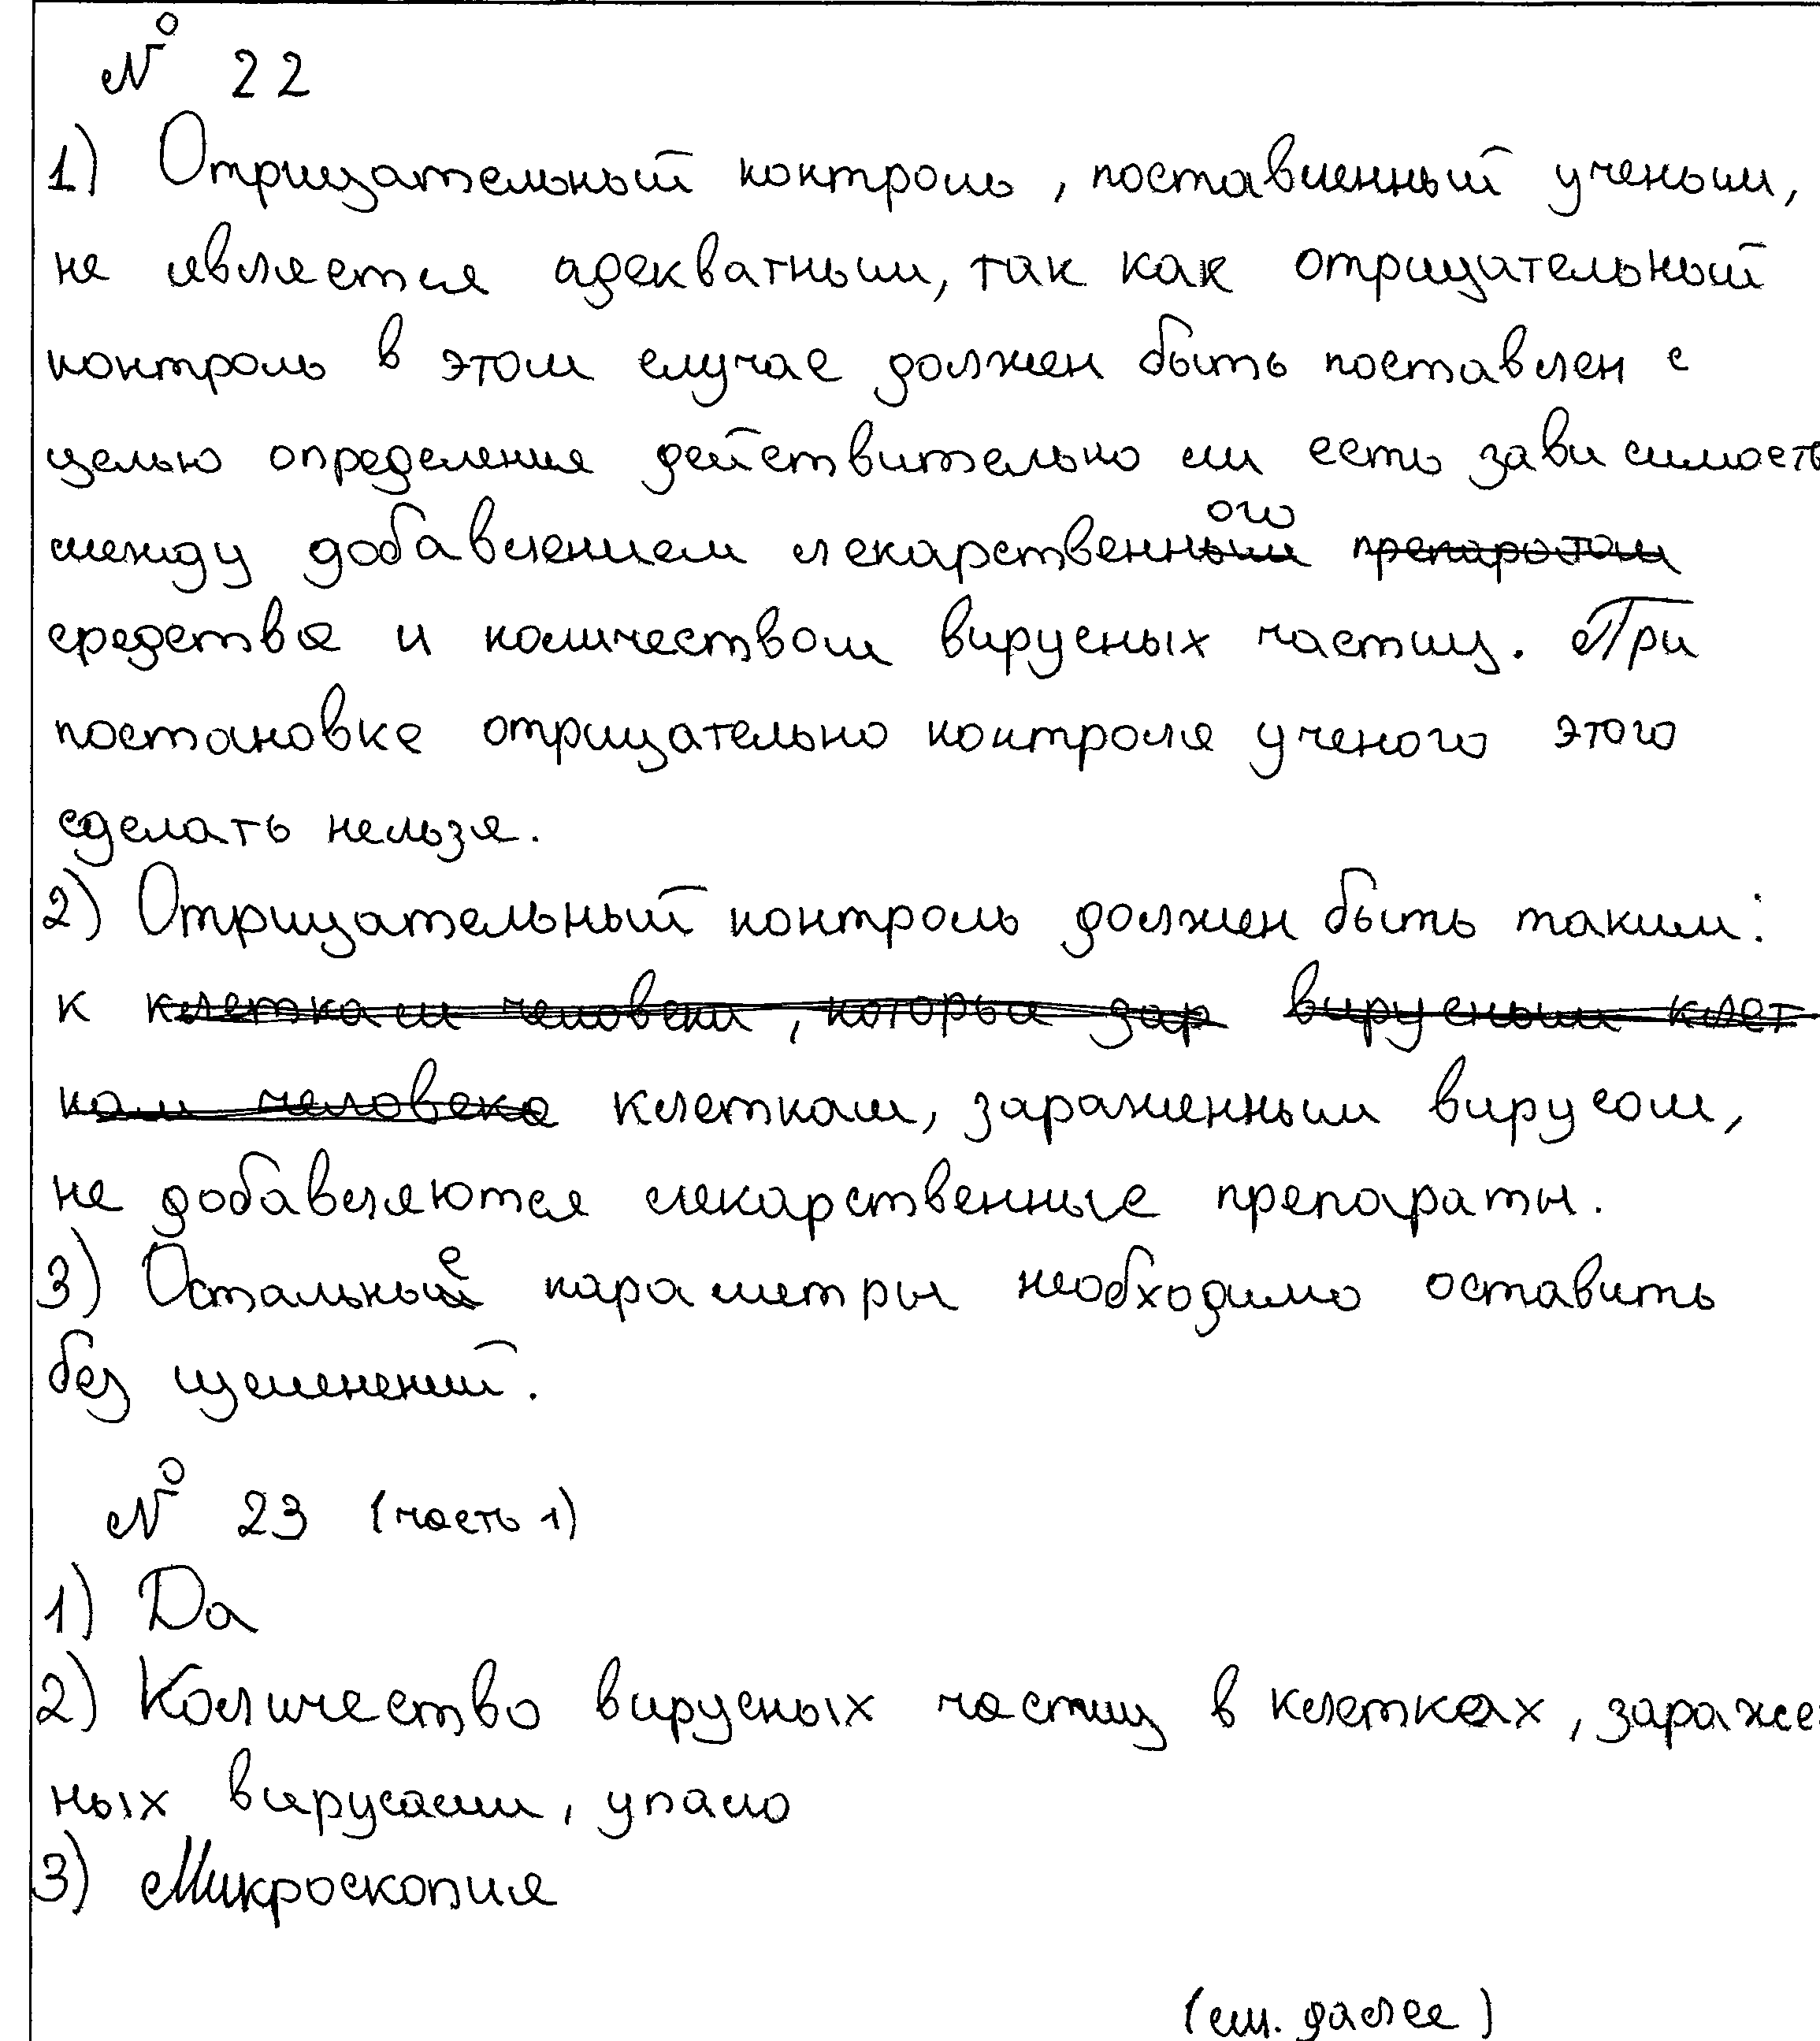 № 22
1) Отрицательный контроль, поставленный ученым,
не является адекватным, так как отрицательный
контроль в этом случае должен быть поставлен с
целью определения действительно ли есть зависимость
между добавлением лекарственного ~~препаратом~~
средства и количеством вирусных частиц. При
постановке отрицательно контроля ученого этого
сделать нельзя.
2) Отрицательный контроль должен быть таким:
к ~~клеткам человека, которые зар~~ ~~вирусным клет~~
~~кам человека~~ клеткам, зараженным вирусом,
не добавляются лекарственные препараты.
3) Остальные параметры необходимо оставить
без изменений.
№ 23 (часть 1)
1) Да
2) Количество вирусных частиц в клетках, зараже
ных вирусами, упало
3) Микроскопия
(см. далее)